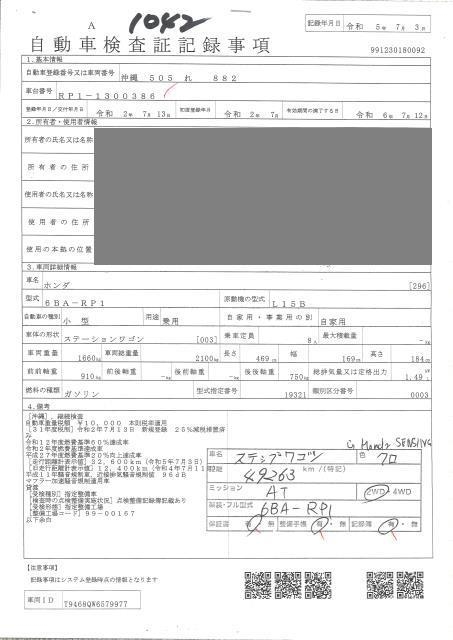 A 1042
記録年月日 令和 5年 7月 3日
自動車検査証記録事項
991230180092
1.基本情報
自動車登録番号又は車両番号 沖縄 505 れ 882
車台番号 RP1-1300386
登録年月日/交付年月日 令和 2年 7月 13日 初度登録年月 令和 2年 7月 有効期間の満了する日 令和 6年 7月 12日
2.所有者・使用者情報
所有者の氏名又は名称
所有者の住所
使用者の氏名又は名称
使用者の住所
使用の本拠の位置
3.車両詳細情報
車名 ホンダ [296]
型式 6BA-RP1 原動機の型式 L15B
自動車の種別 小型 用途 乗用 自家用・事業用の別 自家用
車体の形状 ステーションワゴン [003] 乗車定員 8人 最大積載量 -kg
車両重量 1660kg 車両総重量 2100kg 長さ 469cm 幅 169cm 高さ 184cm
前前軸重 910kg 前後軸重 -kg 後前軸重 -kg 後後軸重 750kg 総排気量又は定格出力 1.49
燃料の種類 ガソリン 型式指定番号 19321 類別区分番号 0003
4.備考
[沖縄],継続検査
自動車重量税額 ¥10,000 本則税率適用
[31年度税制]令和2年7月13日 新規登録 25%減税措置済
み
令和12年度燃費基準60%達成車
令和2年度燃費基準達成車
平成27年度燃費基準20%向上達成車
[走行距離計表示値]32,600km(令和5年7月3日)
[旧走行距離計表示値]12,400km(令和4年7月11日)
平成11年騒音規制車,近接排気騒音規制値 96dB
マフラー加速騒音規制適用車
[受検種別]指定整備車
[検査時の点検整備実施状況]点検整備記録簿記載あり
[受検形態]指定整備工場
[整備工場コード]99-00167
以下余白
G Honda SENSING
車名 ステップワゴン 色 クロ
距離 49263 km/(特記)
ミッション AT 2WD・4WD
型式・フル型式 6BA-RP1
保証書 有・無 整備手帳 有・無 記録簿 有・無
【注意事項】
記録事項はシステム登録時点の情報となります
車両ID T9468QW6579977